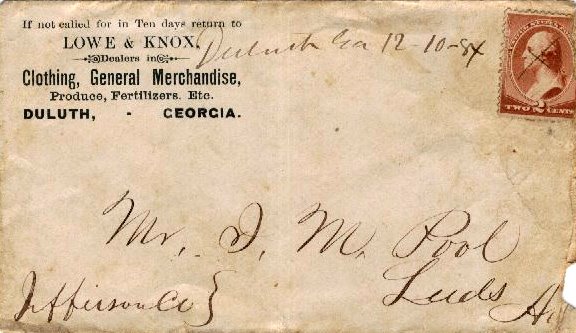 If not called for in Ten days return to
LOWE & KNOX,
Dealers in
Clothing, General Merchandise,
Produce, Fertilizers. Etc.
DULUTH, - GEORGIA.
Duluth Ga 12-10-84
TWO 2 CENTS
Mr, I, M, Pool
Leeds
Jefferson Co }